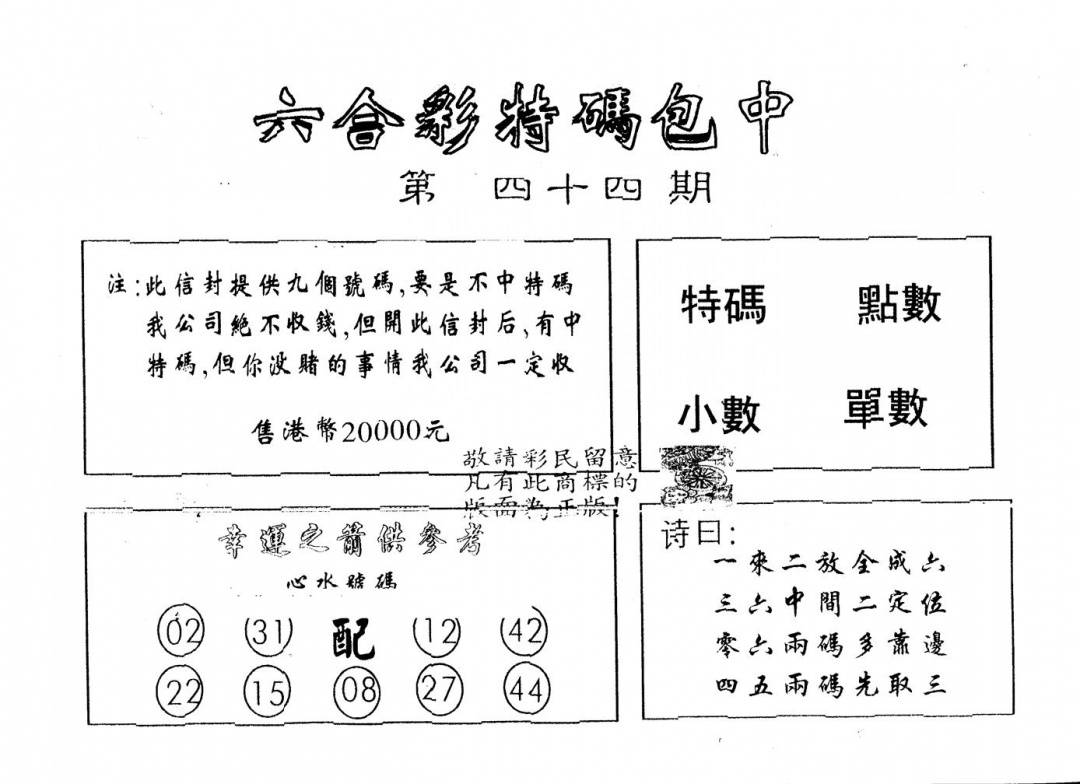 六合彩特碼包中
第 四十四期
注:此信封提供九個號碼,要是不中特碼
我公司絕不收錢,但開此信封后,有中
特碼,但你没賭的事情我公司一定收
售港幣20000元
特碼 點數
小數 單數
敬請彩民留意
凡有此商標的
版面為正版!
幸運之箭供參考
心水號碼
02 31 配 12 42
22 15 08 27 44
诗曰:
一來二放全成六
三六中間二定位
零六兩碼多靠邊
四五兩碼先取三